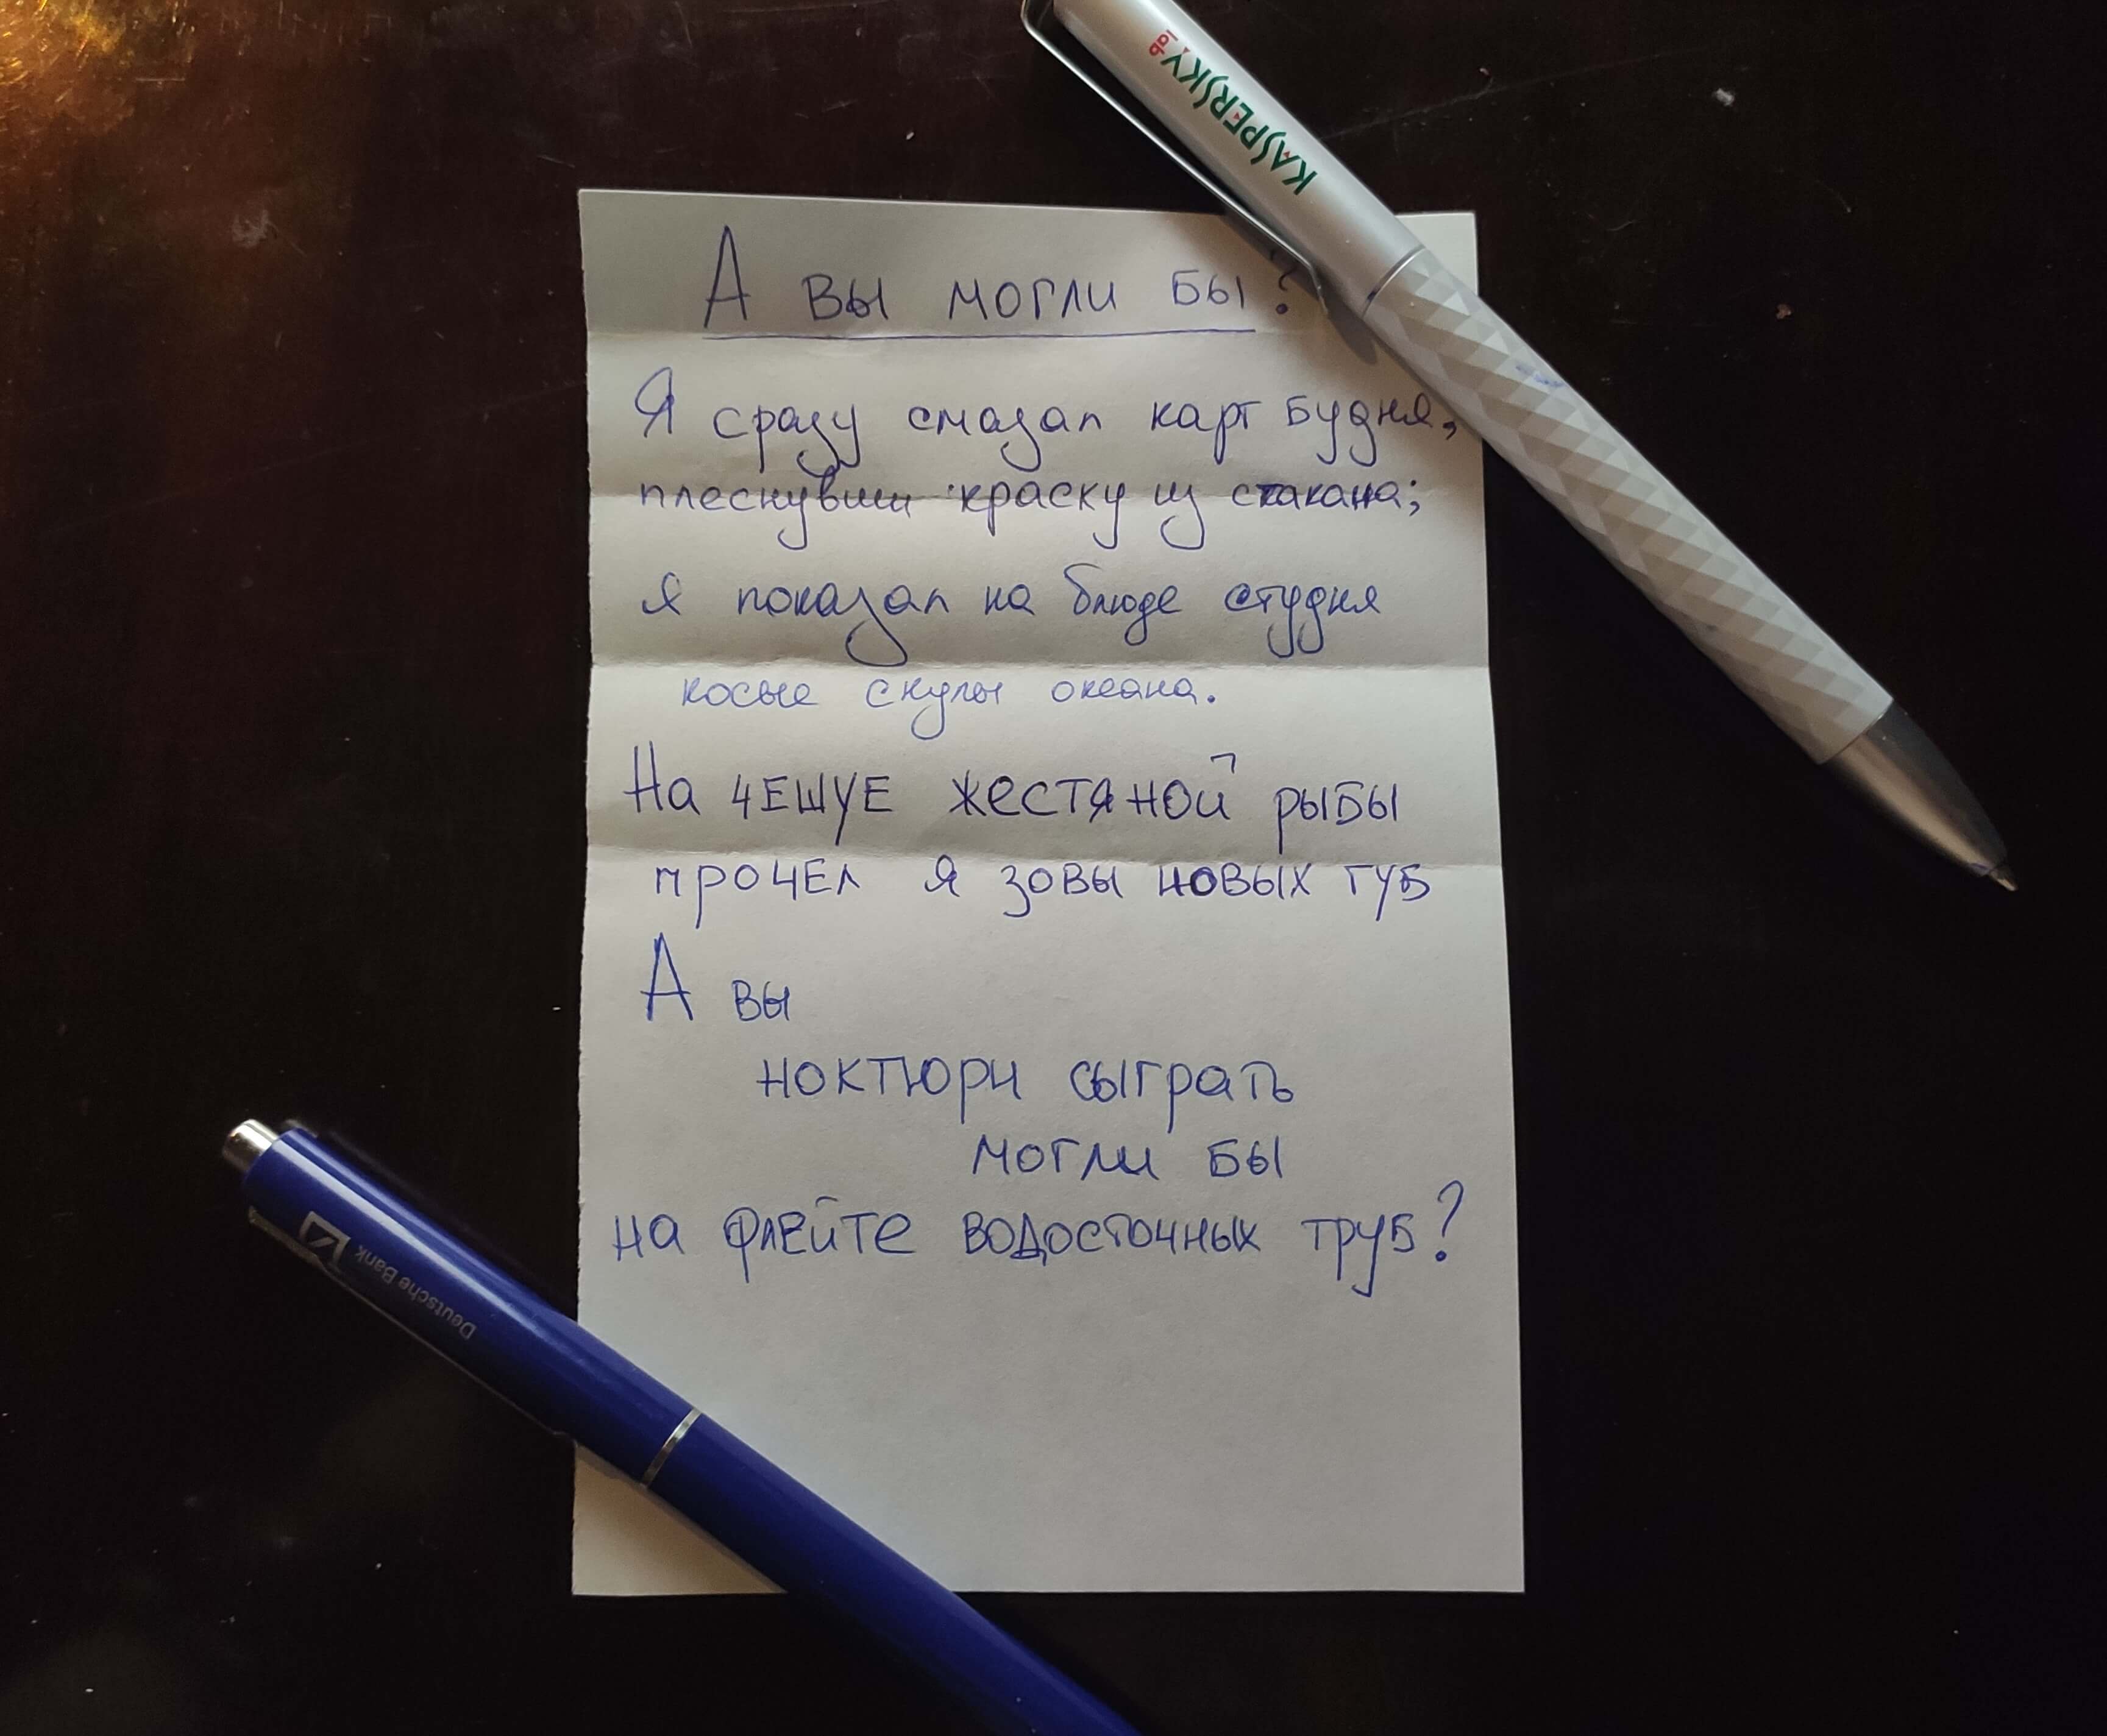 KASPERSKY lab
А вы могли бы?
Я сразу смазал карт будня,
плеснувши краску из стакана;
я показал на блюде студня
косые скулы океана.
На чешуе жестяной рыбы
прочел я зовы новых губ
А вы
ноктюрн сыграть
могли бы
на флейте водосточных труб?
Deutsche Bank